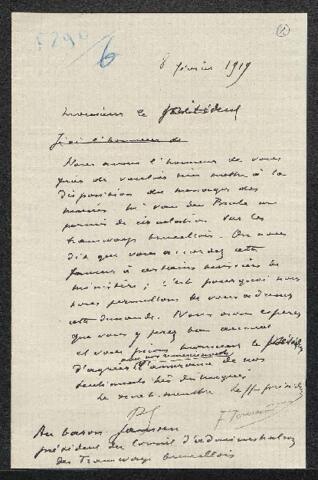 5290
6
8 février 1919
Monsieur le Président
J'ai l'honneur de
Nous avons l'honneur de vous
prier de vouloir bien mettre à la
disposition du messager des
musées Mr van den Poele un
permis de circulation sur les
tramways bruxellois. On nous
dit que vous accordez cette
faveur à certains services de
ministère ; c'est pourquoi nous
nous permettons de vous adresser
cette demande. Nous nous espérons
que vous y ferez bon accueil
et vous prions monsieur le président
d'agréer l'assurance de nos
sentiments très distingués.
Le secr. membre Le ff président
Au baron Janssen
président du Conseil d'administration
des Tramways bruxellois